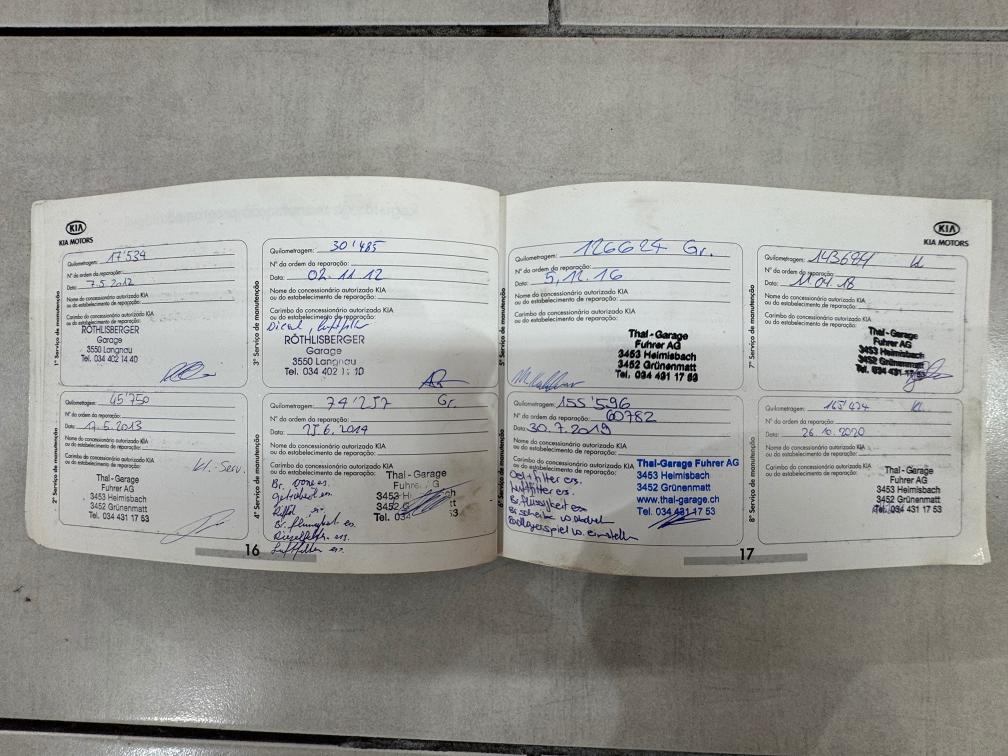 KIA
KIA MOTORS
1º Serviço de manutenção
Quilometragem: 17'534
Nº da ordem da reparação:
Data: 7.5.2012
Nome do concessionário autorizado KIA
ou do estabelecimento de reparação:
Carimbo do concessionário autorizado KIA
ou do estabelecimento de reparação:
RÖTHLISBERGER
Garage
3550 Langnau
Tel. 034 402 14 40
2º Serviço de manutenção
Quilometragem: 45'750
Nº da ordem da reparação:
Data: 17.5.2013
Nome do concessionário autorizado KIA
ou do estabelecimento de reparação:
Carimbo do concessionário autorizado KIA
ou do estabelecimento de reparação:
kl.-Serv.
Thal-Garage
Fuhrer AG
3453 Heimisbach
3452 Grünenmatt
Tel. 034 431 17 53
3º Serviço de manutenção
Quilometragem: 30'485
Nº da ordem da reparação:
Data: 02.11.12
Nome do concessionário autorizado KIA
ou do estabelecimento de reparação:
Carimbo do concessionário autorizado KIA
ou do estabelecimento de reparação:
Diesel, Luftfilter
RÖTHLISBERGER
Garage
3550 Langnau
Tel. 034 402
4º Serviço de manutenção
Quilometragem: 74'257 Gr.
Nº da ordem da reparação:
Data: 25.6.2014
Nome do concessionário autorizado KIA
ou do estabelecimento de reparação:
Carimbo do concessionário autorizado KIA
ou do estabelecimento de reparação:
Br. vorne.
Br. flüssigkeit er.
Dieselfilter ers.
Luftfilter er.
Thal-Garage
Fuhrer AG
3453
3452
Tel. 034 53
16
5º Serviço de manutenção
126624 Gr.
Quilometragem:
Nº da ordem da reparação:
Data: 5.12.16
Nome do concessionário autorizado KIA
ou do estabelecimento de reparação:
Carimbo do concessionário autorizado KIA
ou do estabelecimento de reparação:
Thal-Garage
Fuhrer AG
3453 Heimisbach
3452 Grünenmatt
Tel. 034 431 17 53
6º Serviço de manutenção
Quilometragem: 155'596
Nº da ordem da reparação: 60782
Data: 30.7.2019
Nome do concessionário autorizado KIA
ou do estabelecimento de reparação:
Carimbo do concessionário autorizado KIA
ou do estabelecimento de reparação:
Oelfilter ers.
Luftfilter ers.
Br. flüssigkeit ers.
Thal-Garage Fuhrer AG
3453 Heimisbach
3452 Grünenmatt
www.thal-garage.ch
Tel. 034 431 17 53
KIA
KIA MOTORS
7º Serviço de manutenção
Quilometragem: 143694 kl
Nº da ordem da reparação:
Data: 11.04.18
Nome do concessionário autorizado KIA
ou do estabelecimento de reparação:
Carimbo do concessionário autorizado KIA
ou do estabelecimento de reparação:
Thal-Garage
Fuhrer AG
3453 Heimisbach
3452 Grünenmatt
Tel. 034 431 17 53
8º Serviço de manutenção
Quilometragem: 165'474 kl
Nº da ordem da reparação:
Data: 26.10.2020
Nome do concessionário autorizado KIA
ou do estabelecimento de reparação:
Carimbo do concessionário autorizado KIA
ou do estabelecimento de reparação:
Thal-Garage
Fuhrer AG
3453 Heimisbach
3452 Grünenmatt
Tel. 034 431 17 53
17